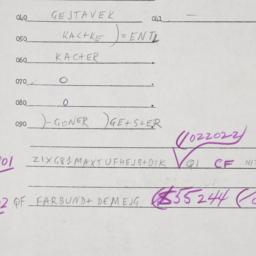 040 GEJTAVEK 041 —
050 KACTKE )=ENTL
060 KACTER
070 O
080 O
090 )-GONER )GE+SLER
(1022022)
01 ZIXG81MAXTUFHEJB+DIK ✓ Q1 CF
02 QF FARBUND+ DEMEJG 55244